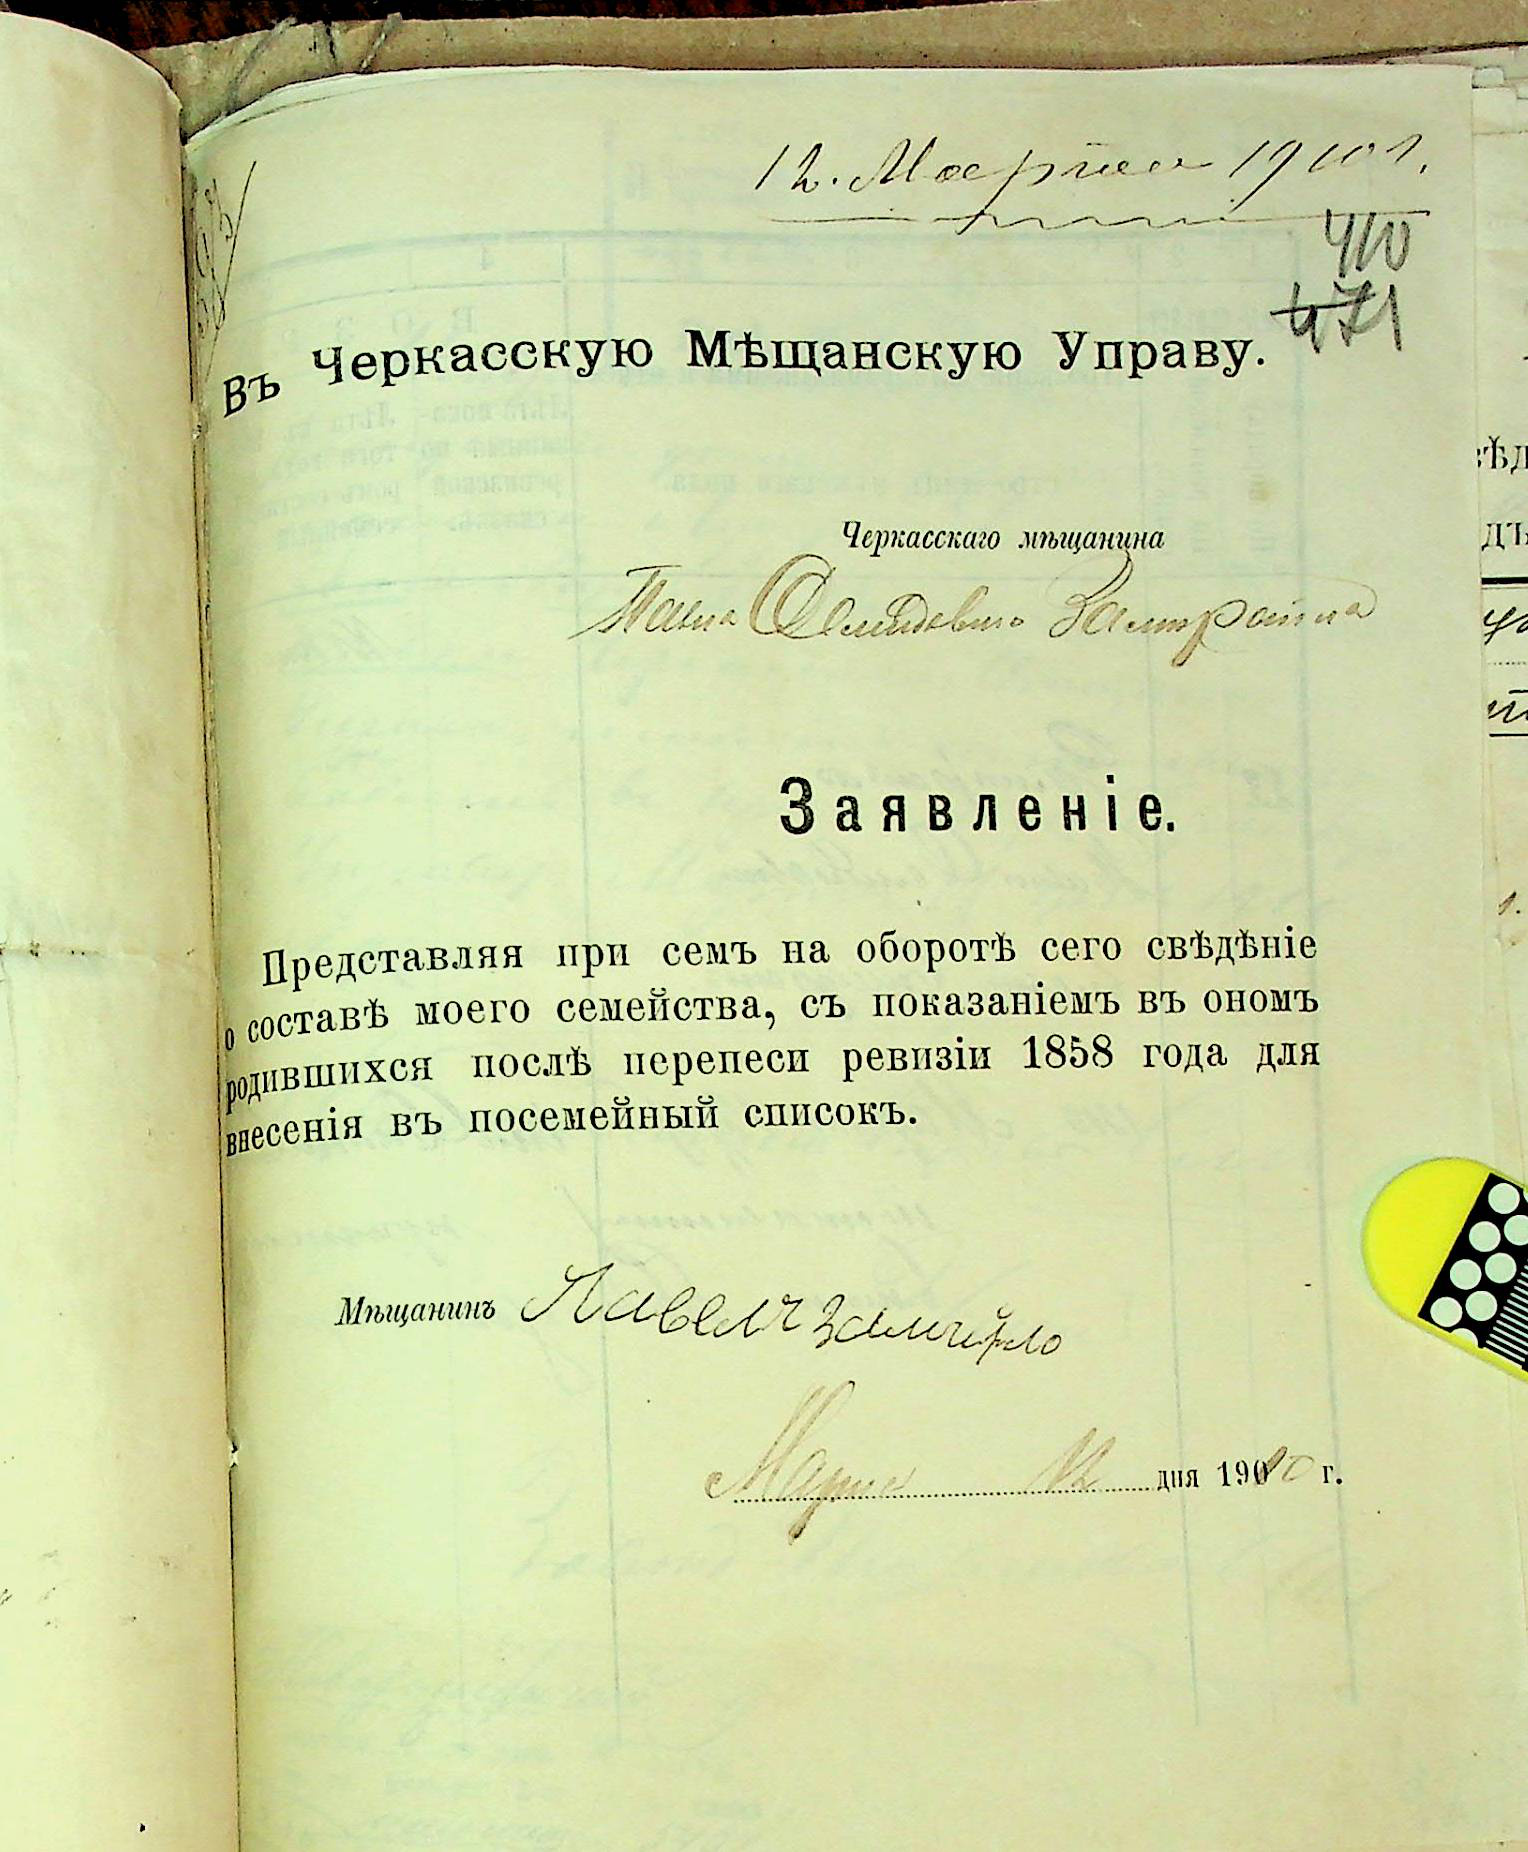 12. Марта 1910 г.
410
471
Въ Черкасскую Мѣщанскую Управу.
Черкасскаго мѣщанина
Павла
Заявленіе.
Представляя при семъ на оборотѣ сего свѣдѣніе
о составѣ моего семейства, съ показаніемъ въ ономъ
родившихся послѣ перепеси ревизіи 1858 года для
внесенія въ посемейный списокъ.
Мѣщанинъ Павелъ
Марта 12 дня 1910 г.